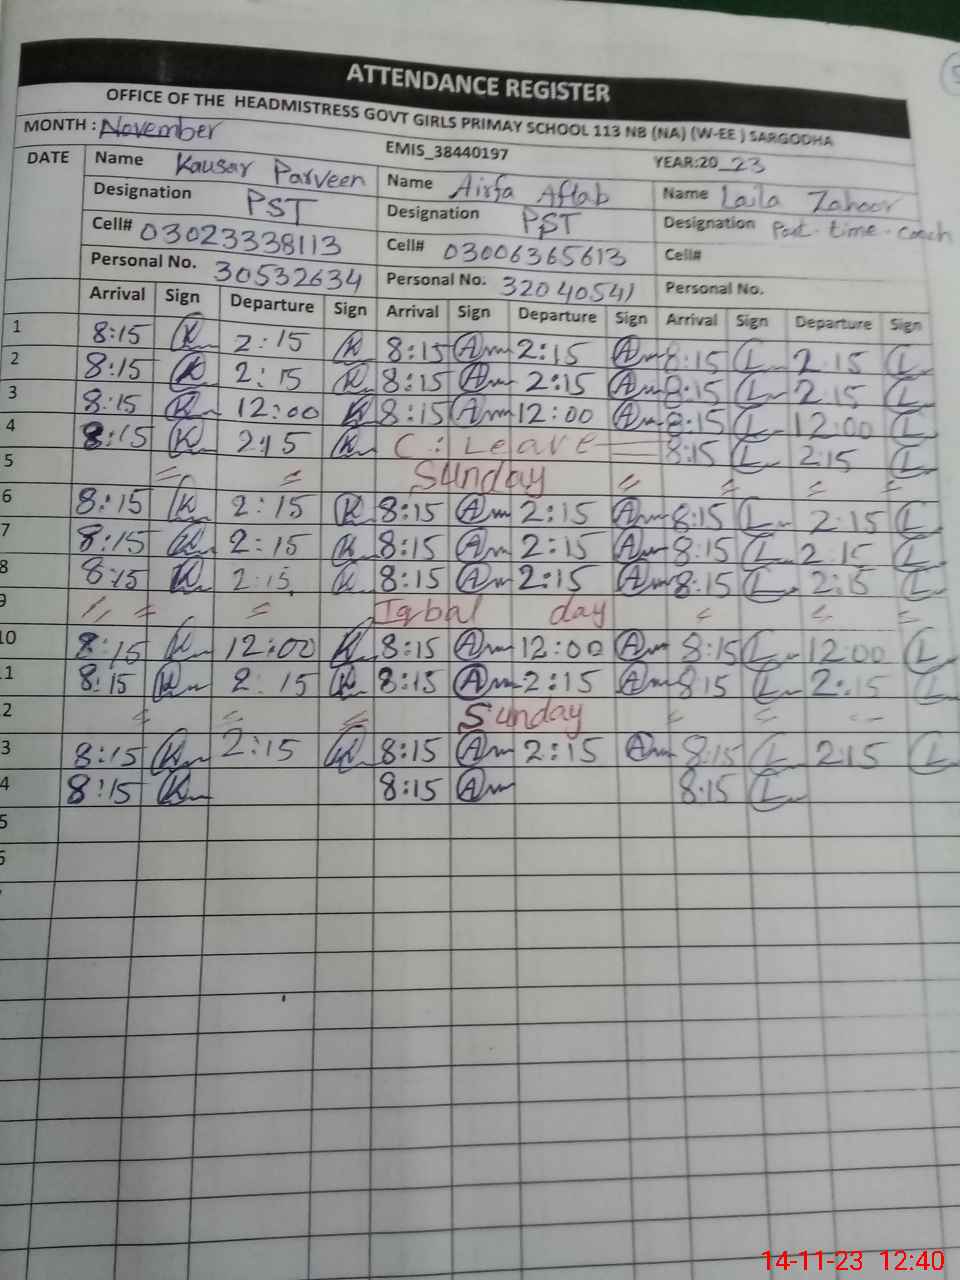 ATTENDANCE REGISTER
OFFICE OF THE HEADMISTRESS GOVT GIRLS PRIMAY SCHOOL 113 NB (NA) (W-EE ) SARGODHA
MONTH : November EMIS_38440197 YEAR:20_23
DATE Name Kausar Parveen Name Airfa Aftab Name Laila Zahoor
Designation PST Designation PST Designation Part-time-coach
Cell# 03023338113 Cell# 03006365613 Cell#
Personal No. 30532634 Personal No. 32040541 Personal No.
Arrival Sign Departure Sign Arrival Sign Departure Sign Arrival Sign Departure Sign
1 8:15 K 2:15 K 8:15 Am 2:15 Am 8:15 L 2:15 L
2 8:15 K 2:15 K 8:15 Am 2:15 Am 8:15 L 2:15 L
3 8:15 K 12:00 K 8:15 Am 12:00 Am 8:15 L 12:00 L
4 8:15 K 2:15 K C: Leave 8:15 L 2:15 L
5 = = Sunday = = = =
6 8:15 K 2:15 K 8:15 Am 2:15 Am 8:15 L 2:15 L
7 8:15 K 2:15 K 8:15 Am 2:15 Am 8:15 L 2:15 L
8 8:15 K 2:15 K 8:15 Am 2:15 Am 8:15 L 2:15 L
9 = = = Iqbal day = = =
10 8:15 K 12:00 K 8:15 Am 12:00 Am 8:15 L 12:00 L
1 8:15 K 2:15 K 8:15 Am 2:15 Am 8:15 L 2:15 L
2 = = = Sunday = = =
3 8:15 K 2:15 K 8:15 Am 2:15 Am 8:15 L 2:15 L
4 8:15 K 8:15 Am 8:15 L
5
14-11-23 12:40